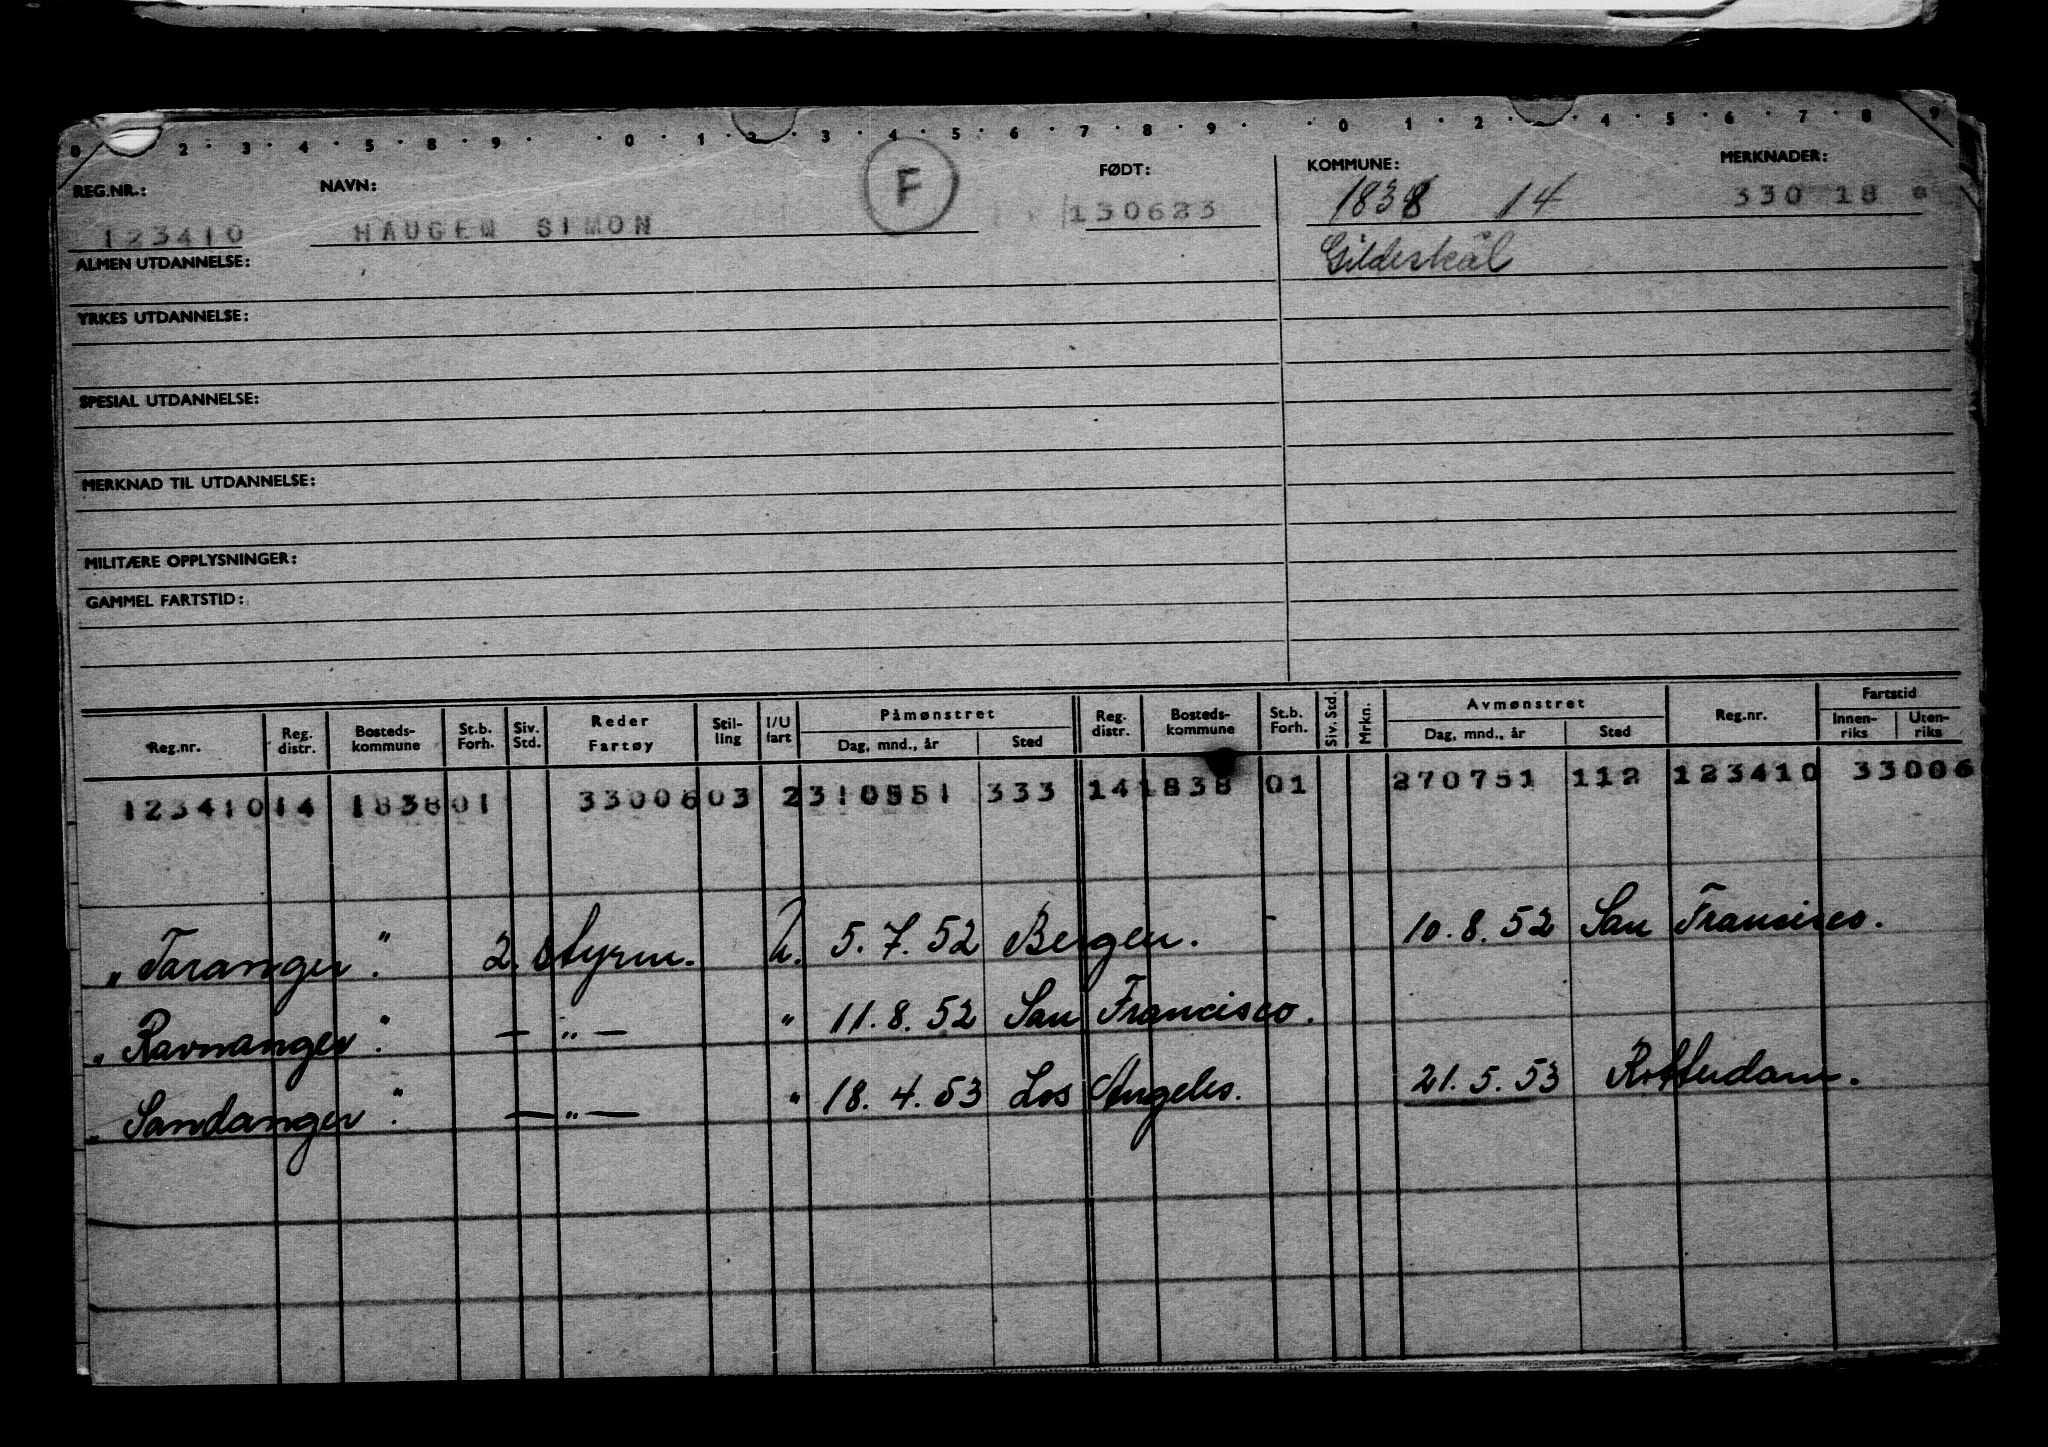 0 2 · 3 · 4 · 5 · 8 · 9 · · 0 · 1 · 2 · 3 · 4 · 5 · 6 · 7 · 8 · 9 · · 0 · 1 · 2 · 4 · 5 · 6 · 7 · 8 · 9
REG.NR.: NAVN: F FØDT: KOMMUNE: MERKNADER:
123410 HAUGEN SIMON 130623 1838 14 330 18
ALMEN UTDANNELSE: Gildeskål
YRKES UTDANNELSE:
SPESIAL UTDANNELSE:
MERKNAD TIL UTDANNELSE:
MILITÆRE OPPLYSNINGER:
GAMMEL FARTSTID:
Reg.nr. Reg. distr. Bosteds-kommune St.b. Forh. Siv. Std. Reder Fartøy Stil-ling I/U fart Påmønstret Dag, mnd., år Sted Reg. distr. Bosteds-kommune St.b. Forh. Siv. Std. Mrkn. Avmønstret Dag, mnd., år Sted Reg.nr. Fartstid Innen-riks Uten-riks
123410 14 1838 01 33006 03 2 310551 333 14 1838 01 270751 112 123410 33006
"Taranger". 2. styrm. U. 5.7.52 Bergen. - 10.8.52 San Francisco.
"Ravnanger". — " — " 11.8.52 San Francisco.
"Sandanger". — " — " 18.4.53 Los Angeles. 21.5.53 Rotterdam.